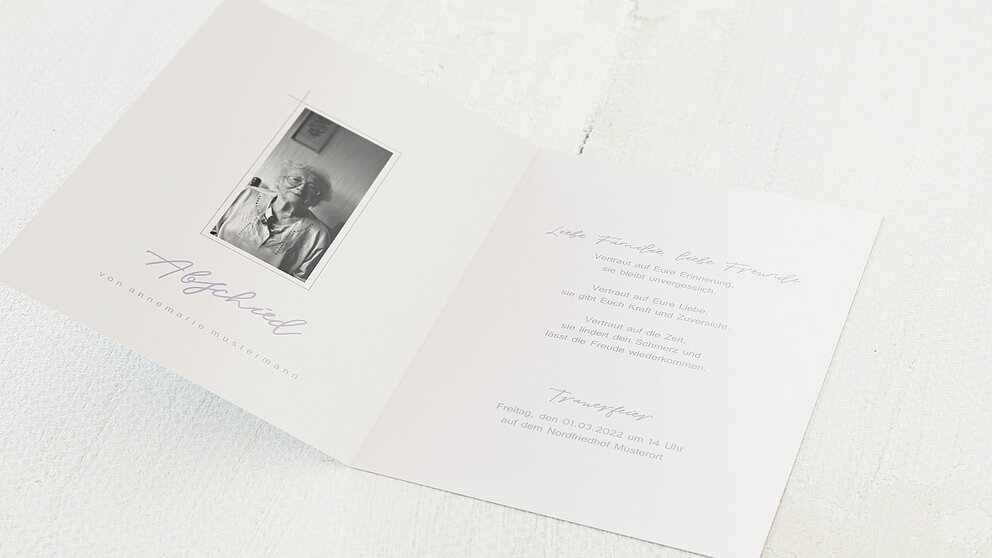 Abschied
von annemarie mustermann
Liebe Familie, liebe Freunde
Vertraut auf Eure Erinnerung,
sie bleibt unvergesslich.
Vertraut auf Eure Liebe,
sie gibt Euch Kraft und Zuversicht.
Vertraut auf die Zeit,
sie lindert den Schmerz und
lässt die Freude wiederkommen.
Trauerfeier
Freitag, den 01.03.2022 um 14 Uhr
auf dem Nordfriedhof Musterort